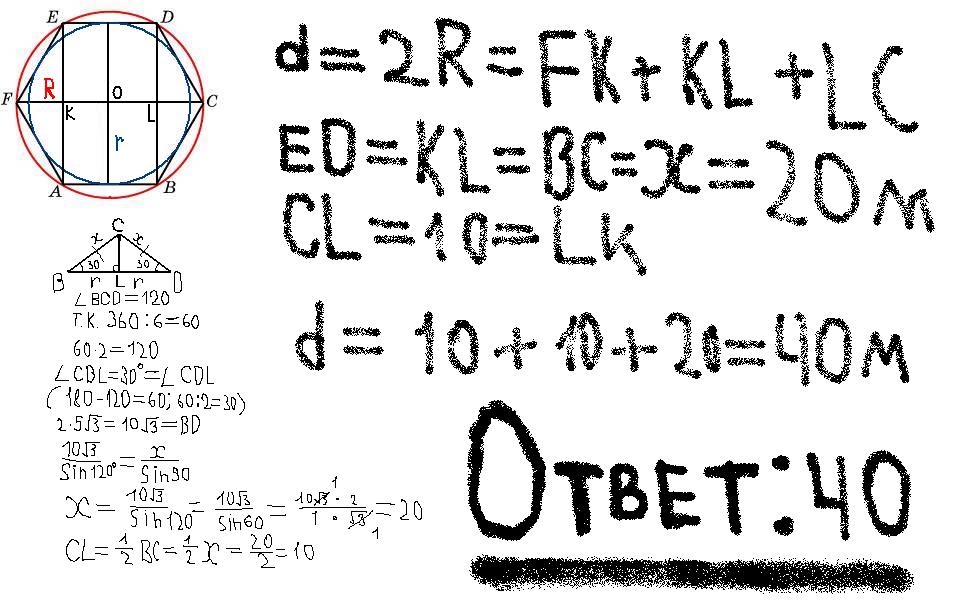 E D
R O
F K L C
r
A B
C
x x
30 30
B r L r D
∠BCD=120
т.к. 360:6=60
60·2=120
∠CBL=30°=∠CDL
(180-120=60; 60:2=30)
2·5√3=10√3=BD
10√3/Sin120°=x/Sin90
x=10√3/Sin120=10√3/Sin60=10√3·2/1·√3=20
1
1
CL=1/2BC=1/2x=20/2=10
d=2R=FK+KL+LC
ED=KL=BC=x=20м
CL=10=LK
d=10+10+20=40м
Ответ:40